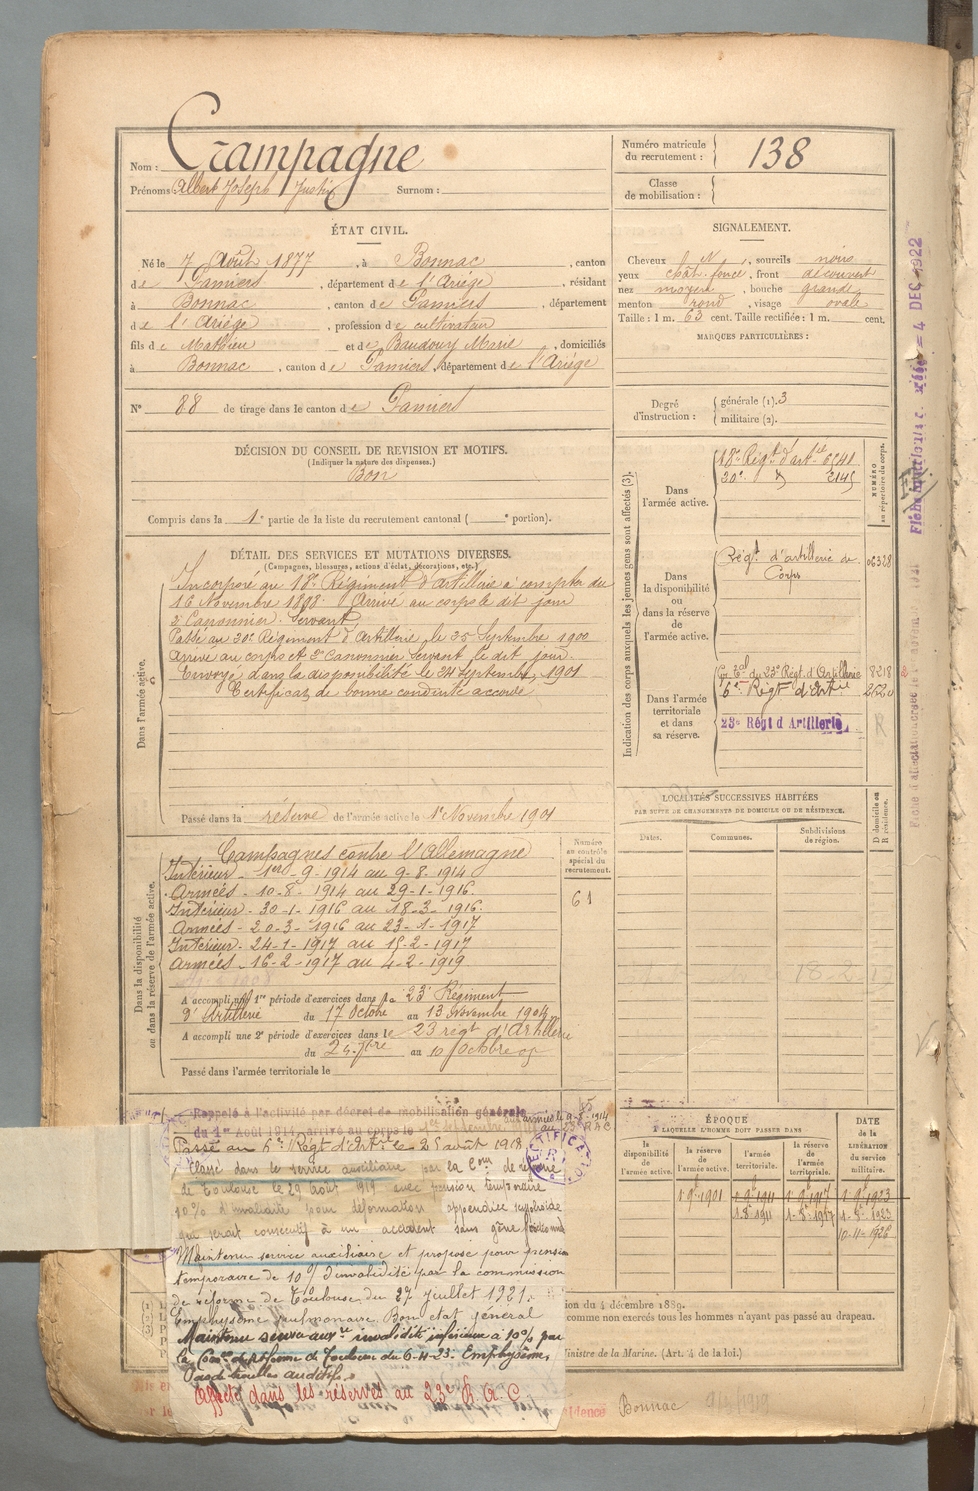 Nom : Crampagne
Prénoms : Albert Joseph Justin Surnom :
Numéro matricule du recrutement : 138
Classe de mobilisation :
ÉTAT CIVIL.
Né le 7 Août 1877, à Bonnac, canton
de Pamiers, département de l'Ariège, résidant
à Bonnac, canton de Pamiers, département
de l'Ariège, profession de cultivateur
fils de Mathieu et de Baudouy Marie, domiciliés
à Bonnac, canton de Pamiers, département de l'Ariège
N° 88 de tirage dans le canton de Pamiers
SIGNALEMENT.
Cheveux N, sourcils noirs
yeux chât. foncé, front découvert
nez moyen, bouche grande
menton rond, visage ovale
Taille : 1 m. 63 cent. Taille rectifiée : 1 m. cent.
MARQUES PARTICULIÈRES :
Degré d'instruction : générale (1). 3
militaire (2).
DÉCISION DU CONSEIL DE REVISION ET MOTIFS.
(Indiquer la nature des dispenses.)
Bon
Compris dans la 1e partie de la liste du recrutement cantonal ( e portion).
DÉTAIL DES SERVICES ET MUTATIONS DIVERSES.
(Campagnes, blessures, actions d'éclat, décorations, etc.)
Dans l'armée active.
Incorporé au 18e Régiment d'artillerie à compter du
16 Novembre 1898. Arrivé au corps le dit jour
2e Canonnier Servant
Passé au 20e Régiment d'Artillerie le 25 Septembre 1900
Arrivé au corps et 2e Canonnier servant le dit jour.
Envoyé dans la disponibilité le 21 Septembre 1901
Certificat de bonne conduite accordé
Passé dans la réserve de l'armée active le 1er Novembre 1901
Indication des corps auxquels les jeunes gens sont affectés (3).
NUMÉRO au répertoire du corps.
Dans l'armée active.
18e Régt d'artie 6541
20e d° 2145
Dans la disponibilité ou dans la réserve de l'armée active.
Régt d'artillerie de Corps 06328
Dans l'armée territoriale et dans sa réserve.
Gr. Tal du 23e Régt d'Artillerie 8218
6e Régt d'Artie
23e Régt d'Artillerie R
LOCALITÉS SUCCESSIVES HABITÉES
PAR SUITE DE CHANGEMENTS DE DOMICILE OU DE RÉSIDENCE.
Dates. Communes. Subdivisions de région. D domicile ou R résidence.
Dans la disponibilité ou dans la réserve de l'armée active.
Numéro au contrôle spécial du recrutement.
61
Campagnes contre l'Allemagne
Intérieur - 1er - 9 - 1914 au 9 - 8 - 1914
Armées - 10 - 8 - 1914 au 29 - 1 - 1916.
Intérieur - 30 - 1 - 1916 au 18 - 3 - 1916.
Armées - 20 - 3 - 1916 au 23 - 1 - 1917
Intérieur - 24 - 1 - 1917 au 15 - 2 - 1917
Armées - 16 - 2 - 1917 au 4 - 2 - 1919
A accompli une 1re période d'exercices dans le 23e Régiment
d'Artillerie du 17 Octobre au 13 Novembre 1904
A accompli une 2e période d'exercices dans le 23 régt d'Artillerie
du 24 7bre au 10 Octobre 07
Passé dans l'armée territoriale le
Rappelé à l'activité par décret de mobilisation générale
du 1er Août 1914, arrivé au corps le
Passé au 6e Régt d'Artie le 25 août 1918
Classé dans le service auxiliaire par la Com de réforme
de Toulouse le 29 Août 1919 avec pension temporaire
10% d'invalidité pour déformation appendice xyphoïde
qui serait consécutif à un accident sans gêne fonctionnelle
Maintenu service auxiliaire et proposé pour pension
temporaire de 10% d'invalidité par la commission
de réforme de Toulouse du 27 juillet 1921.
Emphysème pulmonaire. Bon état général
Maintenu serv. auxre invalidité inférieure à 10% par
la Com. de Réforme de Toulouse du 6-11-23. Emphysème,
Pas de troubles auditifs.
Affecté dans les réserves au 23e R A C
RECTIFICATION
ÉPOQUE
À LAQUELLE L'HOMME DOIT PASSER DANS
la disponibilité de l'armée active.
la réserve de l'armée active.
l'armée territoriale.
la réserve de l'armée territoriale.
DATE de la LIBÉRATION du service militaire.
1 9bre 1901
1-8-1911
10-11-1926
ion du 4 décembre 1889.
comme non exercés tous les hommes n'ayant pas passé au drapeau.
Ministre de la Marine. (Art. 4 de la loi.)
Résidence Bonnac
4 DEC 1922